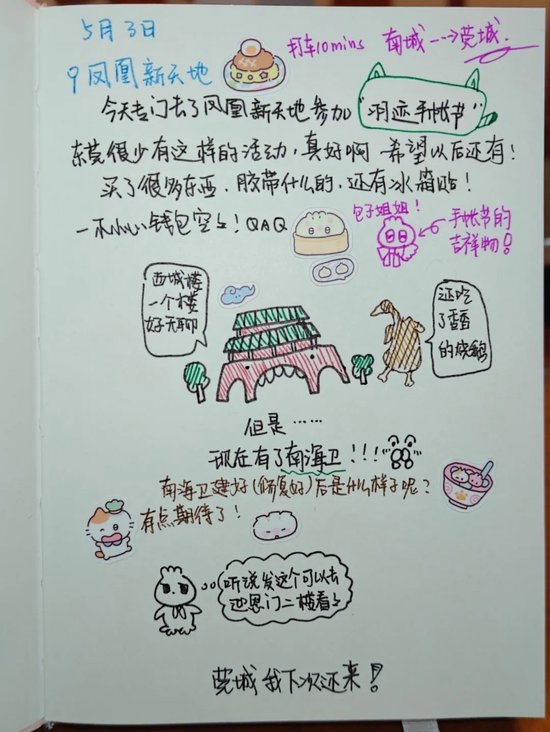 5月3日
打车10mins 南城--->莞城.
凤凰新天地
今天专门去了凤凰新天地参加"羽迹手帐节"
东莞很少有这样的活动,真好啊 希望以后还有!
买了很多东西,胶带什么的,还有冰箱贴!
一不小心钱包空空!QAQ
包子姐姐!
手帐节的
吉祥物!
西城楼
一个楼
好无聊
还吃
了香香
的烧鹅
但是……
现在有了南海卫!!!
南海卫建好(修复好)后是什么样子呢?
有点期待了!
听说发这个可以去
迎恩门二楼看看
莞城 我下次还来!